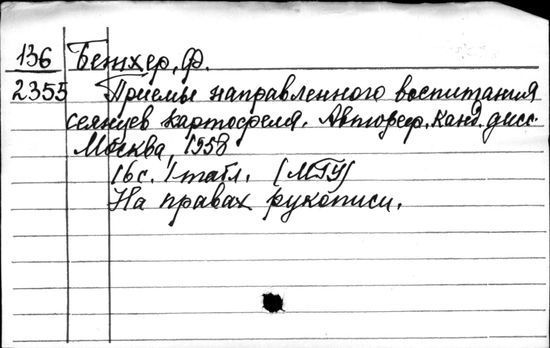 136 Бетхер, Ф.
2355 Приемы направленного воспитания
сеянцев картофеля. Автореф. канд. дисс.
Москва, 1958
16 с. 1 табл. (МГУ)
На правах рукописи.